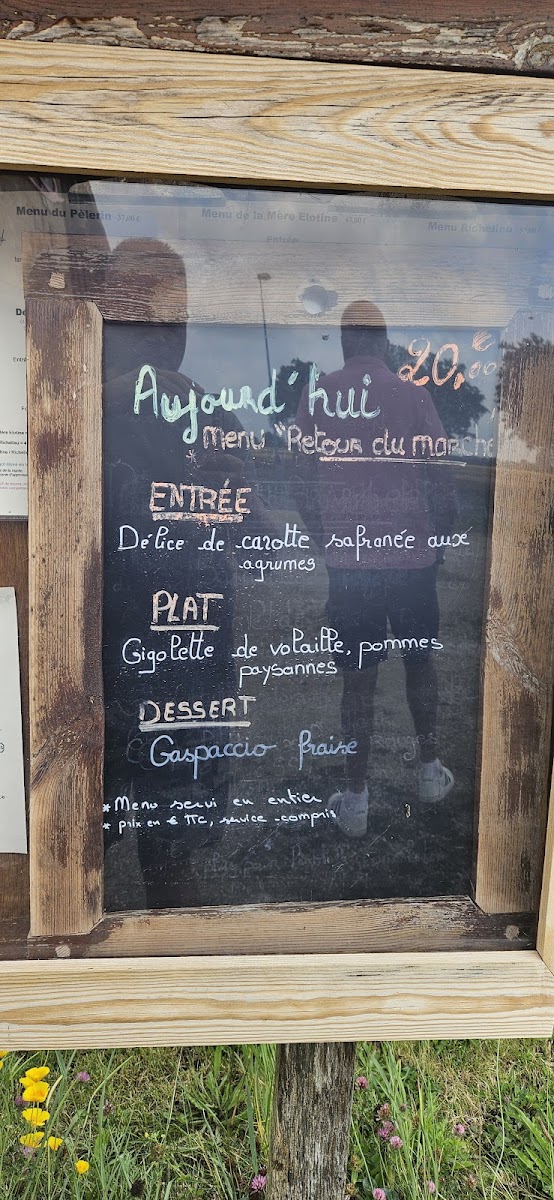 Menu du Pèlerin 37,00 €
Menu de la Mère Elotine
Menu Richelieu
Entrée
Aujourd'hui
20,00 €
* Menu "Retour du marché
ENTRÉE
Délice de carotte safranée aux
agrumes
PLAT
Gigolette de volaille, pommes
paysannes
DESSERT
Gaspaccio fraise
* Menu servi en entier
* prix en € TTC, service compris